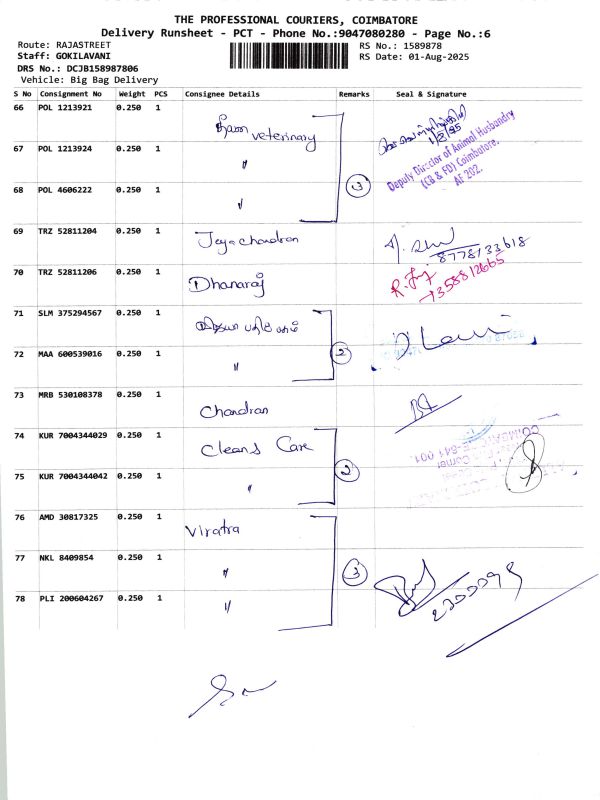 THE PROFESSIONAL COURIERS, COIMBATORE
Delivery Runsheet - PCT - Phone No.:9047080280 - Page No.:6
Route: RAJASTREET
Staff: GOKILAVANI
DRS No.: DCJB158987806
Vehicle: Big Bag Delivery
RS No.: 1589878
RS Date: 01-Aug-2025
S No Consignment No Weight PCS Consignee Details Remarks Seal & Signature
66 POL 1213921 0.250 1 veterinary
67 POL 1213924 0.250 1 "
68 POL 4606222 0.250 1 " 3
Deputy Director of Animal Husbandry
(CB & FD) Coimbatore.
AF 202.
69 TRZ 52811204 0.250 1 Jeyachandran 8778133618
70 TRZ 52811206 0.250 1 Dhanaraj
71 SLM 375294567 0.250 1
72 MAA 600539016 0.250 1 " 2
73 MRB 530108378 0.250 1 Chandran
74 KUR 7004344029 0.250 1 Cleans Care
75 KUR 7004344042 0.250 1 " 2
76 AMD 30817325 0.250 1 Viratra
77 NKL 8409854 0.250 1 " 3
78 PLI 200604267 0.250 1 "